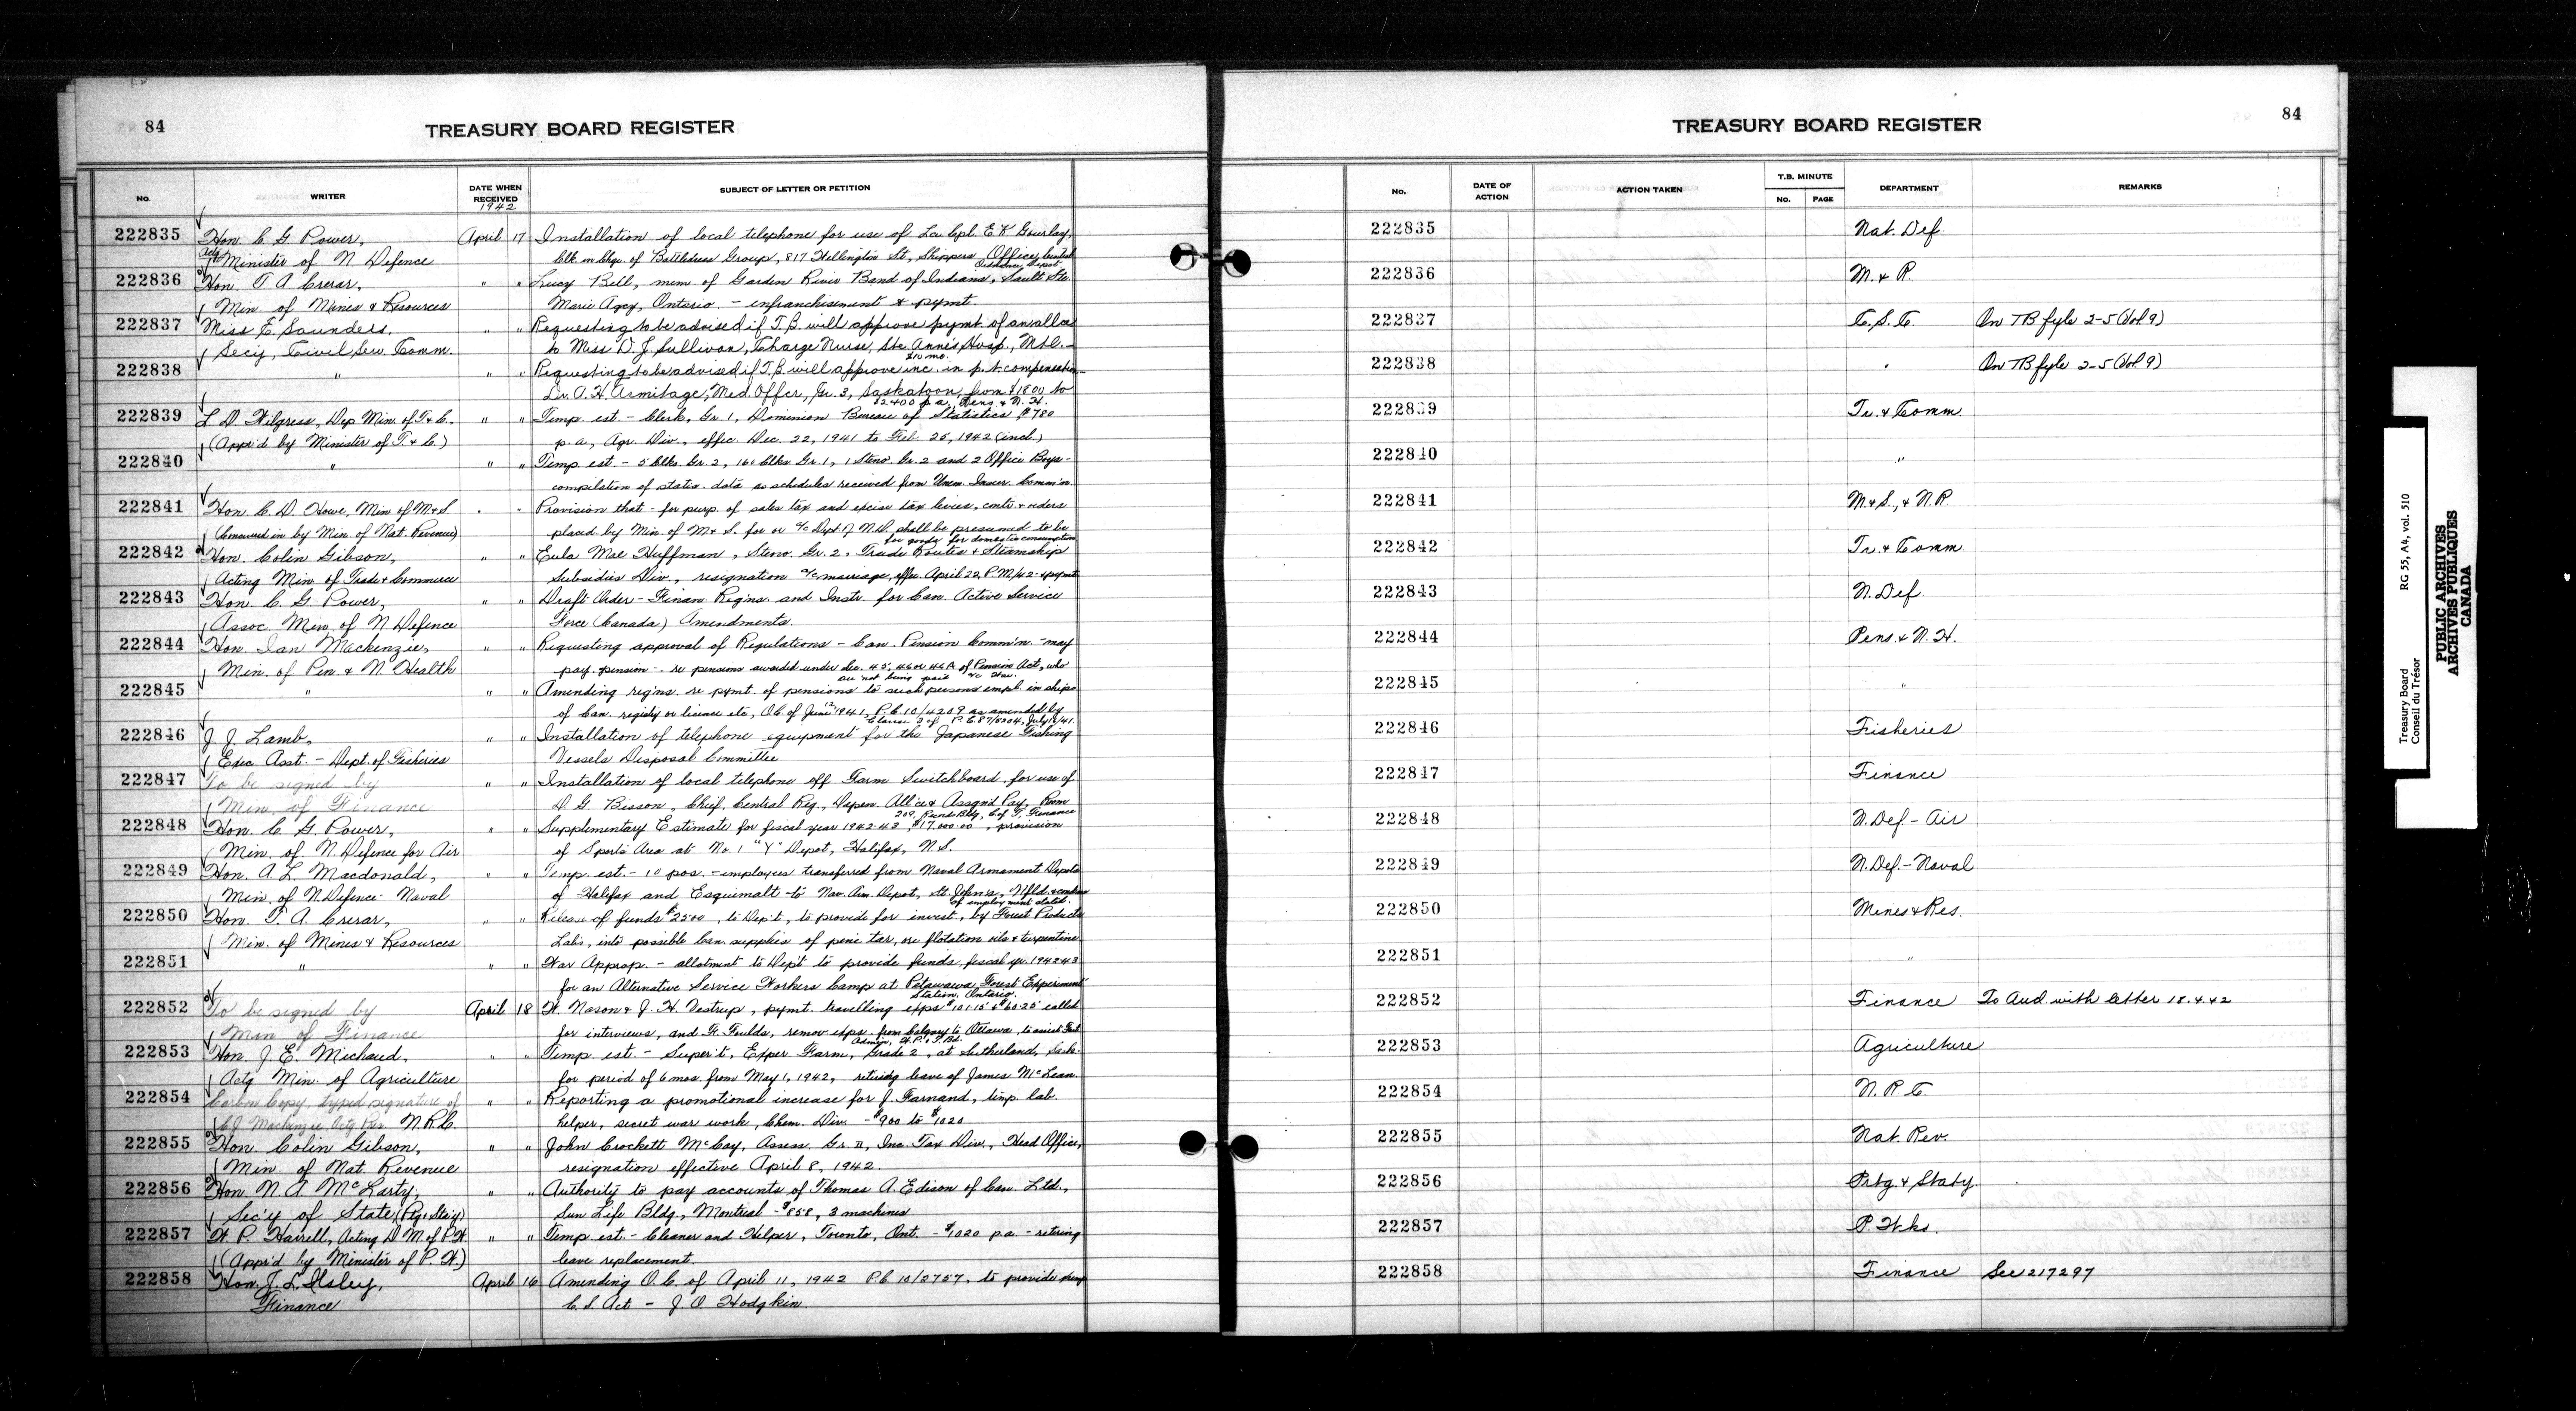 84
TREASURY BOARD REGISTER
No.
WRITER
DATE WHEN RECEIVED
1942
SUBJECT OF LETTER OR PETITION
222835 Hon. C. G. Power, April 17 Installation of local telephone for use of La Cpl. E K Gourlay,
Actg Minister of N. Defence Clk. in Chge. of Battledress Group, 817 Wellington St., Shippers Office,
Ordnance Depot
222836 Hon. T. A. Crerar, " " Lucy Bell, mem. of Garden River Band of Indians, Sault Ste.
Min. of Mines & Resources Marie Agcy, Ontario - enfranchisement & pymt.
222837 Miss E. Saunders, " " Requesting to be advised if T.B. will approve pymt. of an allce
Secy, Civil Serv. Comm. to Miss D. J. Sullivan, Charge Nurse, Ste. Anne's Hosp., Mtl. -
$10 mo.
222838 " " " Requesting to be advised if T.B. will approve inc. in p.t. compensation -
Dr. A. H. Armitage, Med. Offcr, Gr. 3, Saskatoon from $1800 to
$2400 p.a., Pens. & N. H.
222839 L. D. Wilgress, Dep Min. of T. & C. " " Temp. est. - Clerk, Gr. 1, Dominion Bureau of Statistics $780
(App'd by Minister of T. & C.) p.a., Agr. Div., effec. Dec. 22, 1941 to Feb. 25, 1942 (incl.)
222840 " " " Temp. est. - 5 Clks. Gr. 2, 160 Clks. Gr. 1, 1 Steno. Gr. 2 and 2 Office Boys -
compilation of statis. data as schedules received from Unem. Insur. Comm'n.
222841 Hon. C. D. Howe, Min. of M. & S. " " Provision that - for purp. of sales tax and excise tax levies, contr. & orders
(Concurred in by Min. of Nat. Revenue) placed by Min. of M. & S. for or a/c Dept of N.D. shall be presumed to be
for goods for domestic consumption
222842 Hon. Colin Gibson, " " Eula Mae Huffman, Steno. Gr. 2, Trade Routes & Steamship
Acting Min. of Trade & Commerce Subsidies Div., resignation a/c marriage, effec. April 22, P.M./42 - & pymt
222843 Hon. C. G. Power, " " Draft Order - Finan. Reg'ns. and Instr. for Can. Active Service
Assoc. Min. of N. Defence Force (Canada) Amendments.
222844 Hon. Ian Mackenzie, " " Requesting approval of Regulations - Can. Pension Comm'n. - may
Min. of Pen. & N. Health pay pension - re pensions awarded under Sec. 45, 46 or 46A of Pension Act, who
are not being paid a/c War.
222845 " " " Amending reg'ns. re pymt. of pensions to such persons empl. in ships
of Can. registry or licence etc., O.C. of June 12, 1941, P.C. 10/4209 as amended by
Clause 3 of P.C. 87/5204, July /41.
222846 J. J. Lamb, " " Installation of telephone equipment for the Japanese Fishing
Exec. Asst. - Dept. of Fisheries Vessels Disposal Committee
222847 To be signed by " " Installation of local telephone off Farm Switchboard, for use of
Min. of Finance D. G. Bisson, Chief, Central Reg., Depen. All'ce & Assgn'd Pay, Room
209, Bldg., C of T., Finance
222848 Hon. C. G. Power, " " Supplementary Estimate for fiscal year 1942-43, $17,000.00, provision
Min. of N. Defence for Air of Sports Area at No. 1 "Y" Depot, Halifax, N.S.
222849 Hon. A. L. Macdonald, " " Temp. est. - 10 pos. - employees transferred from Naval Armament Depots
Min. of N. Defence - Naval of Halifax and Esquimalt to Nav. Arm. Depot, St. John's, Nfld. &
of employment stated.
222850 Hon. T. A. Crerar, " " Release of funds $2500, to Dep't, to provide for invest., by Forest Products
Min. of Mines & Resources Labs., into possible Can. supplies of pine tar, ore flotation oils & turpentine
222851 " " " War Approp. - allotment to Dep't to provide funds, fiscal yr. 1942-43
for an Alternative Service Workers Camp at Petawawa Forest Experiment
Station, Ontario.
222852 To be signed by April 18 W. Nason & J. H. Vestrup, pymt. travelling exps $101.15 & $60.25 called
Min of Finance for interviews, and H. Foulds, remov. exps. from Calgary to Ottawa, to assist
Admin., W.P. & T. Bd.
222853 Hon. J. E. Michaud, " " Temp. est. - Super't, Exper. Farm, Grade 2, at Sutherland, Sask.
Actg Min. of Agriculture for period of 6 mos. from May 1, 1942, retiring leave of James McLean.
222854 Carbon Copy, typed signature of " " Reporting a promotional increase for J. Farnand, temp. lab.
C. J. Mackenzie, Actg Pres. N.R.C. helper, secret war work, Chem. Div. - $900 to $1020
222855 Hon. Colin Gibson, " " John Crockett McCay, Assess. Gr. II, Inc. Tax Div., Head Office,
Min. of Nat. Revenue resignation effective April 8, 1942.
222856 Hon. N. A. McLarty, " " Authority to pay accounts of Thomas A. Edison of Can. Ltd.,
Sec'y of State (Ptg & Sta'y) Sun Life Bldg., Montreal - $858, 3 machines
222857 W. P. Harrell, Acting D. M. of P. W. " " Temp. est. - Cleaner and Helper, Toronto, Ont. - $1020 p.a. - retiring
(App'd by Minister of P. W.) leave replacement.
222858 Hon. J. L. Ilsley, April 16 Amending O.C. of April 11, 1942 P.C. 10/2757, to provide
Finance C. S. Act - J. O Hodgkin
84
TREASURY BOARD REGISTER
No.
DATE OF ACTION
ACTION TAKEN
T.B. MINUTE
No.
PAGE
DEPARTMENT
REMARKS
222835 Nat. Def.
222836 M. & R.
222837 C. S. C. On TB fyle 2-5 (Vol. 9)
222838 " On TB fyle 2-5 (Vol. 9)
222839 Tr. & Comm
222840 "
222841 M. & S., & N.R.
222842 Tr. & Comm
222843 N. Def.
222844 Pens. & N. H.
222845 "
222846 Fisheries
222847 Finance
222848 N. Def. - Air
222849 N. Def. - Naval
222850 Mines & Res.
222851 "
222852 Finance To Aud. with letter 18.4.42
222853 Agriculture
222854 N. R. C.
222855 Nat. Rev.
222856 Prtg. & Staty.
222857 P. Wks.
222858 Finance See 217297
Treasury Board
Conseil du Trésor
RG 55, A4, vol. 510
PUBLIC ARCHIVES
ARCHIVES PUBLIQUES
CANADA